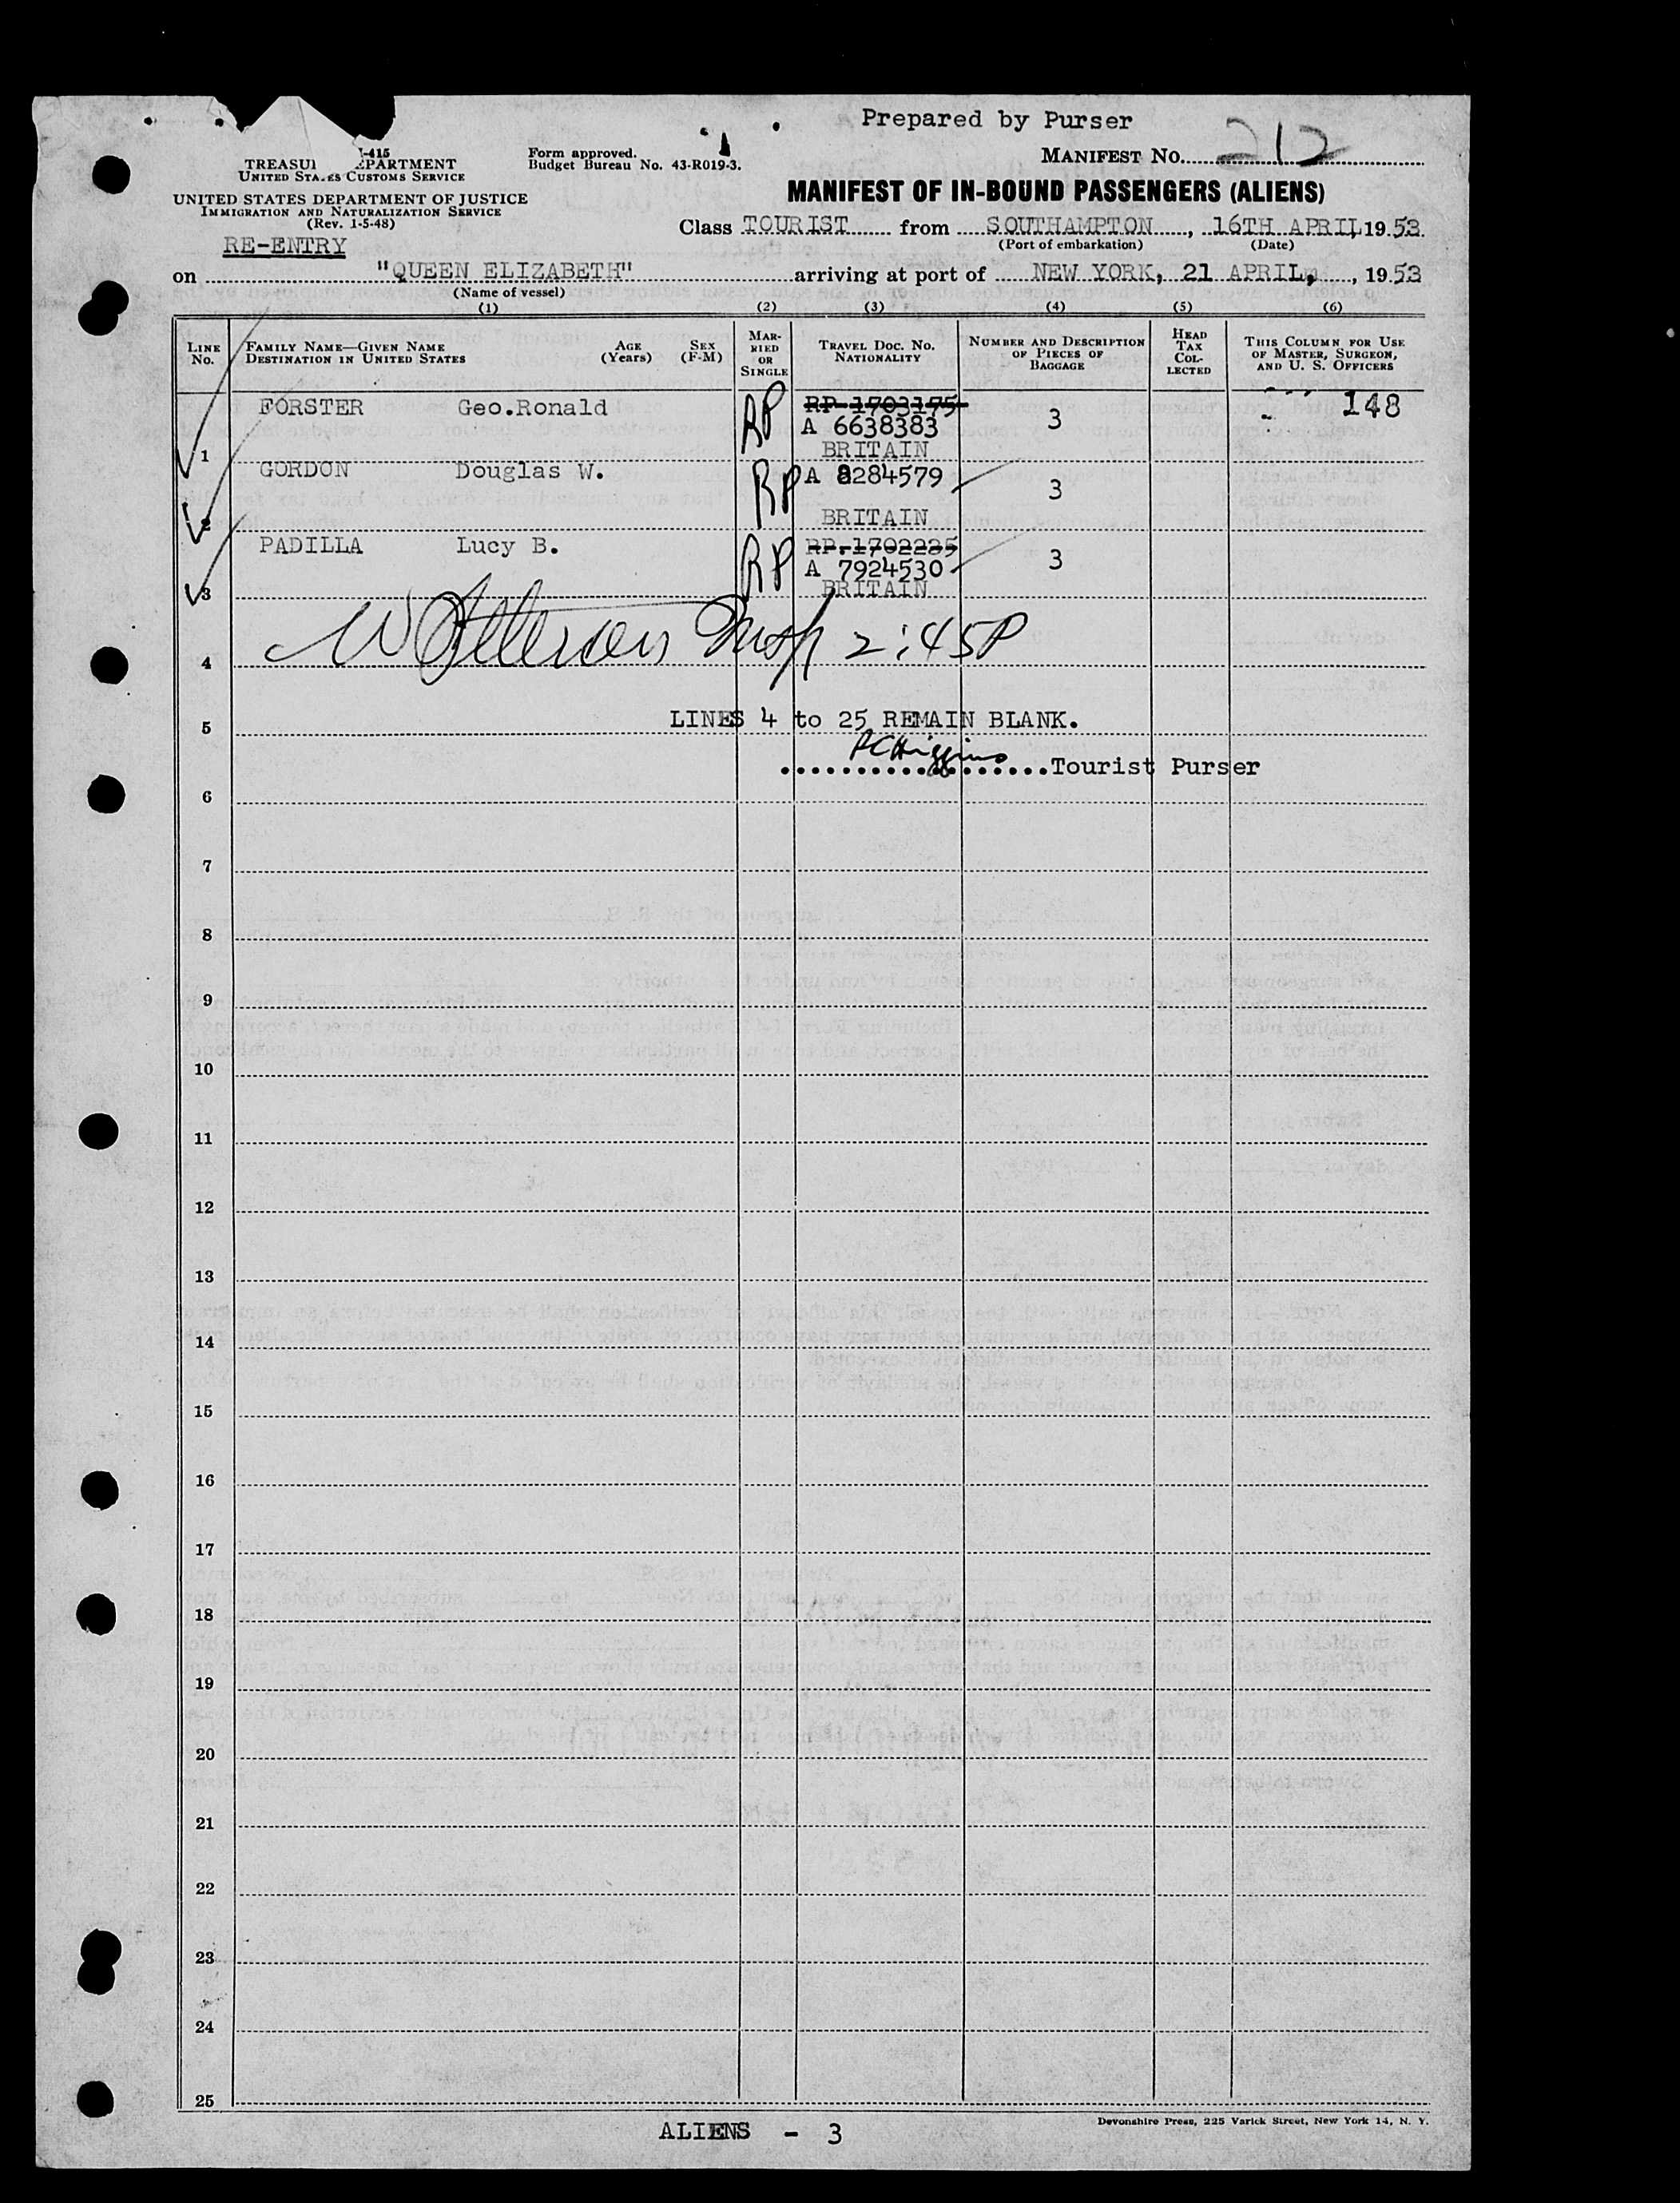 Prepared by Purser
-415
TREASU PARTMENT
UNITED STATES CUSTOMS SERVICE
UNITED STATES DEPARTMENT OF JUSTICE
IMMIGRATION AND NATURALIZATION SERVICE
(Rev. 1-5-48)
RE-ENTRY
Form approved.
Budget Bureau No. 43-R019-3.
MANIFEST NO. 212
MANIFEST OF IN-BOUND PASSENGERS (ALIENS)
Class TOURIST from SOUTHAMPTON, 16TH APRIL, 1953.
(Port of embarkation) (Date)
on "QUEEN ELIZABETH" arriving at port of NEW YORK, 21 APRIL, 1953
(Name of vessel)
(1) (2) (3) (4) (5) (6)
LINE No. FAMILY NAME—GIVEN NAME DESTINATION IN UNITED STATES AGE (Years) SEX (F-M) MARRIED OR SINGLE TRAVEL DOC. NO. NATIONALITY NUMBER AND DESCRIPTION OF PIECES OF BAGGAGE HEAD TAX COLLECTED THIS COLUMN FOR USE OF MASTER, SURGEON, AND U. S. OFFICERS
FORSTER Geo.Ronald RP RP-1703175 3 148
A 6638383
1 BRITAIN
GORDON Douglas W. RP A 8284579 3
2 BRITAIN
PADILLA Lucy B. RP RP.1702235 3
A 7924530
3 BRITAIN
Insp 2:45P
4
LINES 4 to 25 REMAIN BLANK.
5
PC Higgins
Tourist Purser
6
7
8
9
10
11
12
13
14
15
16
17
18
19
20
21
22
23
24
25
ALIENS - 3
Devonshire Press, 225 Varick Street, New York 14, N. Y.